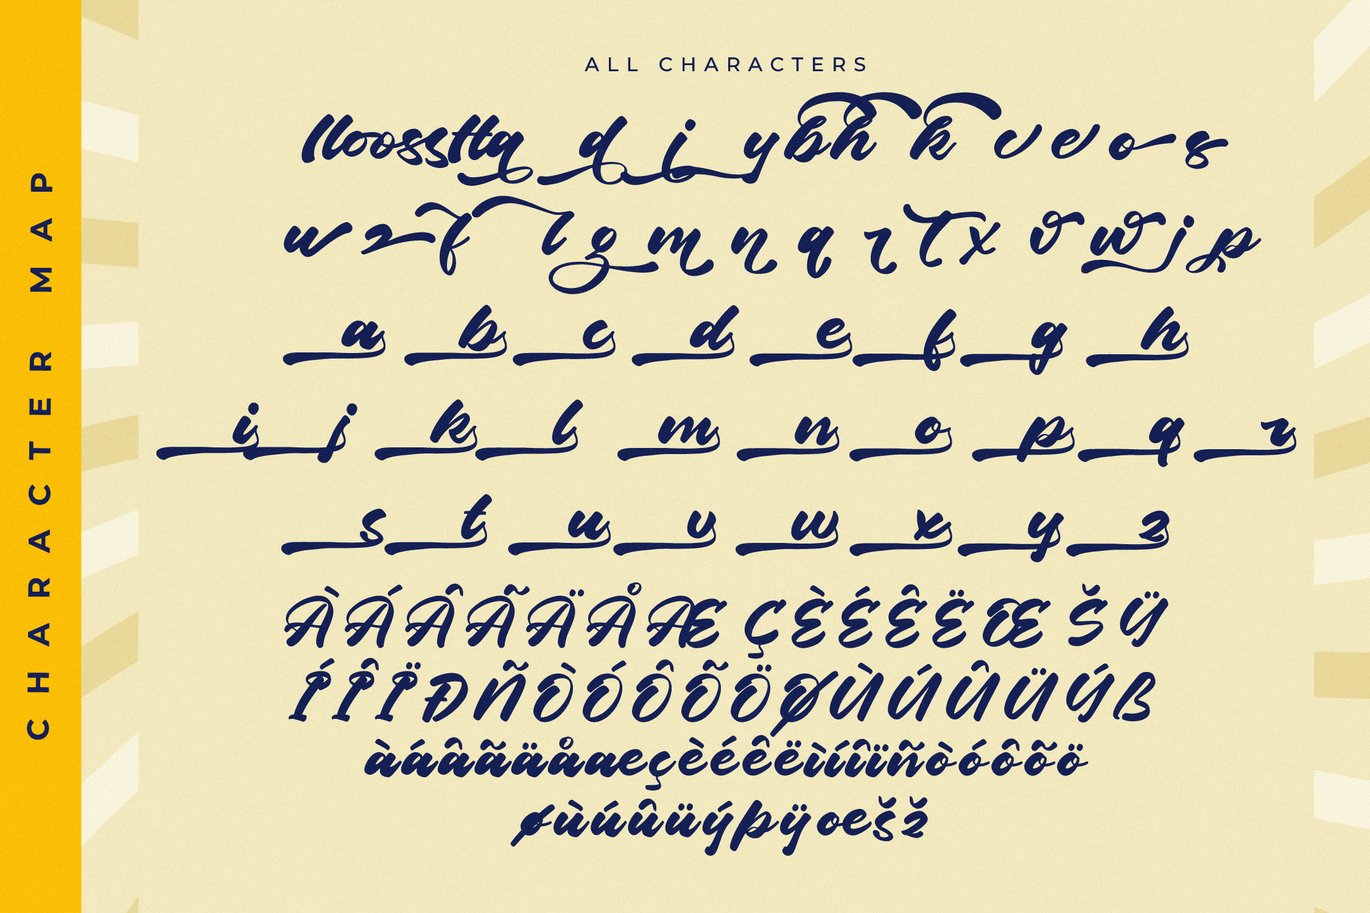 CHARACTER MAP
ALL CHARACTERS
lloosstta d i y b h k v e o s
w z f l g m n q r t x v w j p
a b c d e f g h
i j k l m n o p q r
s t u v w x y z
ÀÁÂÃÄÅÆ ÇÈÉÊËŒŠŸ
ÍÎÏÐÑÒÓÔÕÖØÙÚÛÜÝß
àáâãäåæçèéêëìíîïñòóôõö
øùúûüýþÿœšž